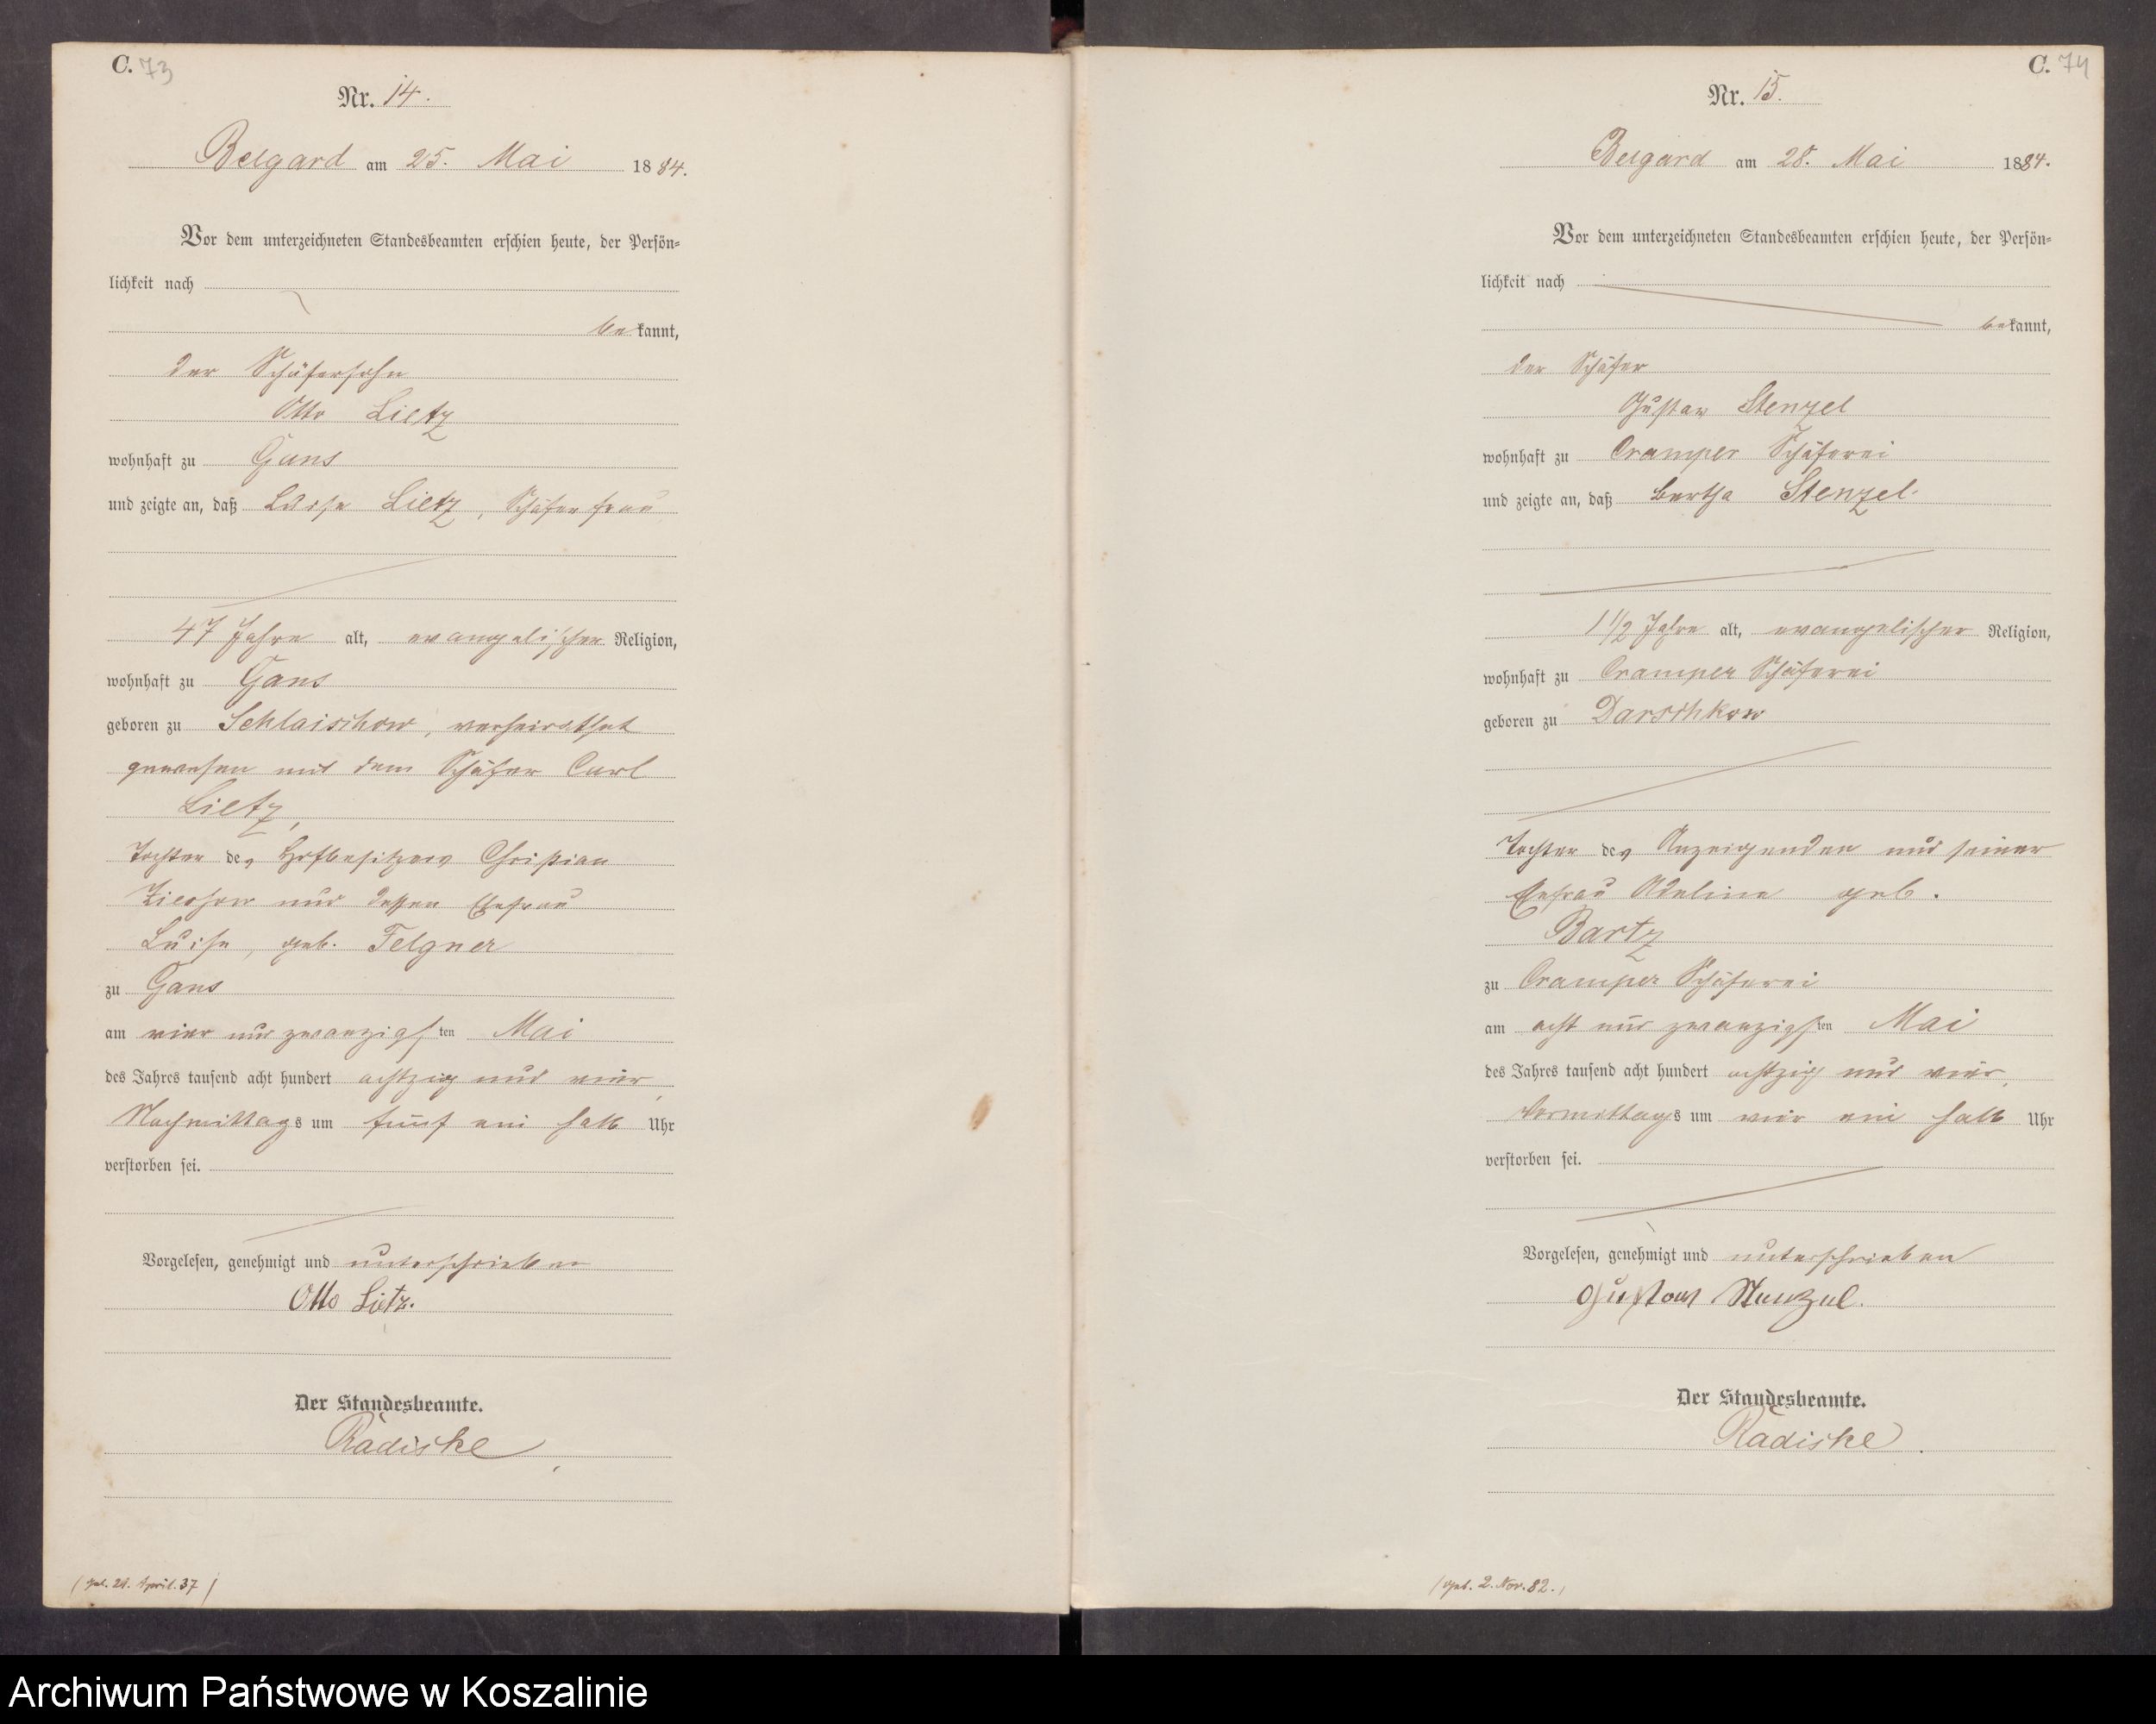 C. 73
Nr. 14.
Belgard am 25. Mai 1884.
Vor dem unterzeichneten Standesbeamten erschien heute, der Persön=
lichkeit nach
bekannt,
der Schäfersohn
Otto Lietz
wohnhaft zu Gans
und zeigte an, daß Luise Lietz, Schäferfrau
47 Jahre alt, evangelischer Religion,
wohnhaft zu Gans
geboren zu Schlaischow, verheirathet
gewesen mit dem Schäfer Carl
Lietz,
Tochter des Hofbesitzers Christian
und dessen Ehefrau
Luise, geb. Felgner
zu Gans
am vier und zwanzigsten Mai
des Jahres tausend acht hundert achtzig und vier,
Nachmittags um fünf ein halb Uhr
verstorben sei.
Vorgelesen, genehmigt und unterschrieben
Otto Lietz.
Der Standesbeamte.
Radiske
(geb. April. 37)
C. 74
Nr. 15.
Belgard am 28. Mai 1884.
Vor dem unterzeichneten Standesbeamten erschien heute, der Persön=
lichkeit nach
bekannt,
der Schäfer
Gustav Stenzel
wohnhaft zu Cramper Schäferei
und zeigte an, daß Bertha Stenzel
1 1/2 Jahre alt, evangelischer Religion,
wohnhaft zu Cramper Schäferei
geboren zu Darschkow
Tochter des Anzeigenden und seiner
Ehefrau Adeline geb.
Bartz
zu Cramper Schäferei
am acht und zwanzigsten Mai
des Jahres tausend acht hundert achtzig und vier,
Vormittags um vier ein halb Uhr
verstorben sei.
Vorgelesen, genehmigt und unterschrieben
Gustav Stenzel.
Der Standesbeamte.
Radiske.
(geb. 2. Nov. 82.)
Archiwum Państwowe w Koszalinie